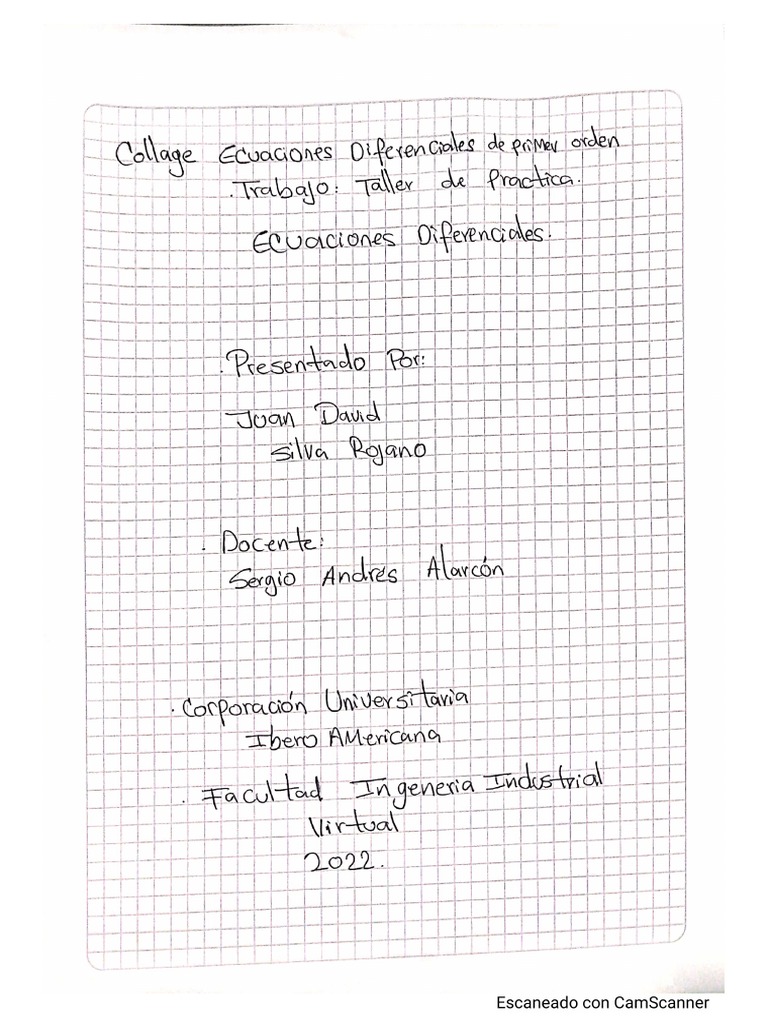 Collage Ecuaciones Diferenciales de primer orden
. Trabajo: Taller de Practica.
Ecuaciones Diferenciales.
. Presentado Por:
Juan David
Silva Rojano
. Docente:
Sergio Andrés Alarcón
. Corporación Universitaria
Ibero Americana
. Facultad Ingeneria Industrial
Virtual
2022.
Escaneado con CamScanner